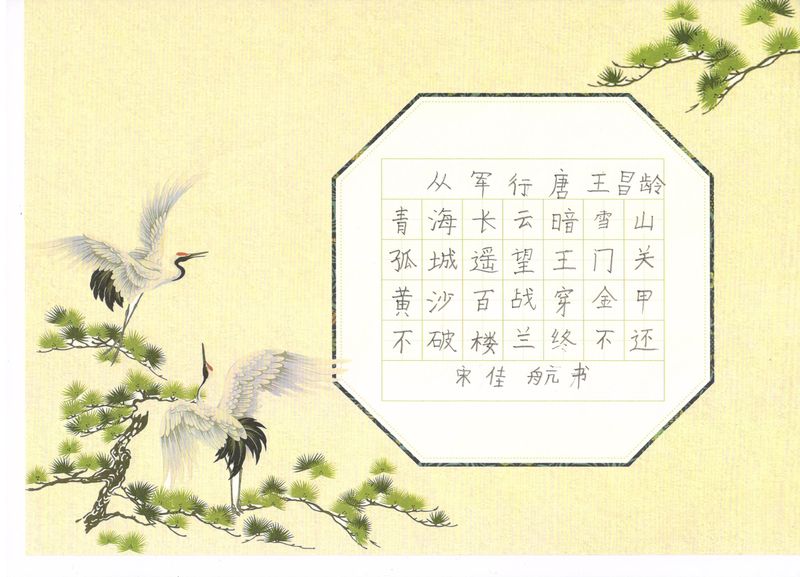 从军行 唐 王昌龄
青海长云暗雪山
孤城遥望王门关
黄沙百战穿金甲
不破楼兰终不还
宋佳航书